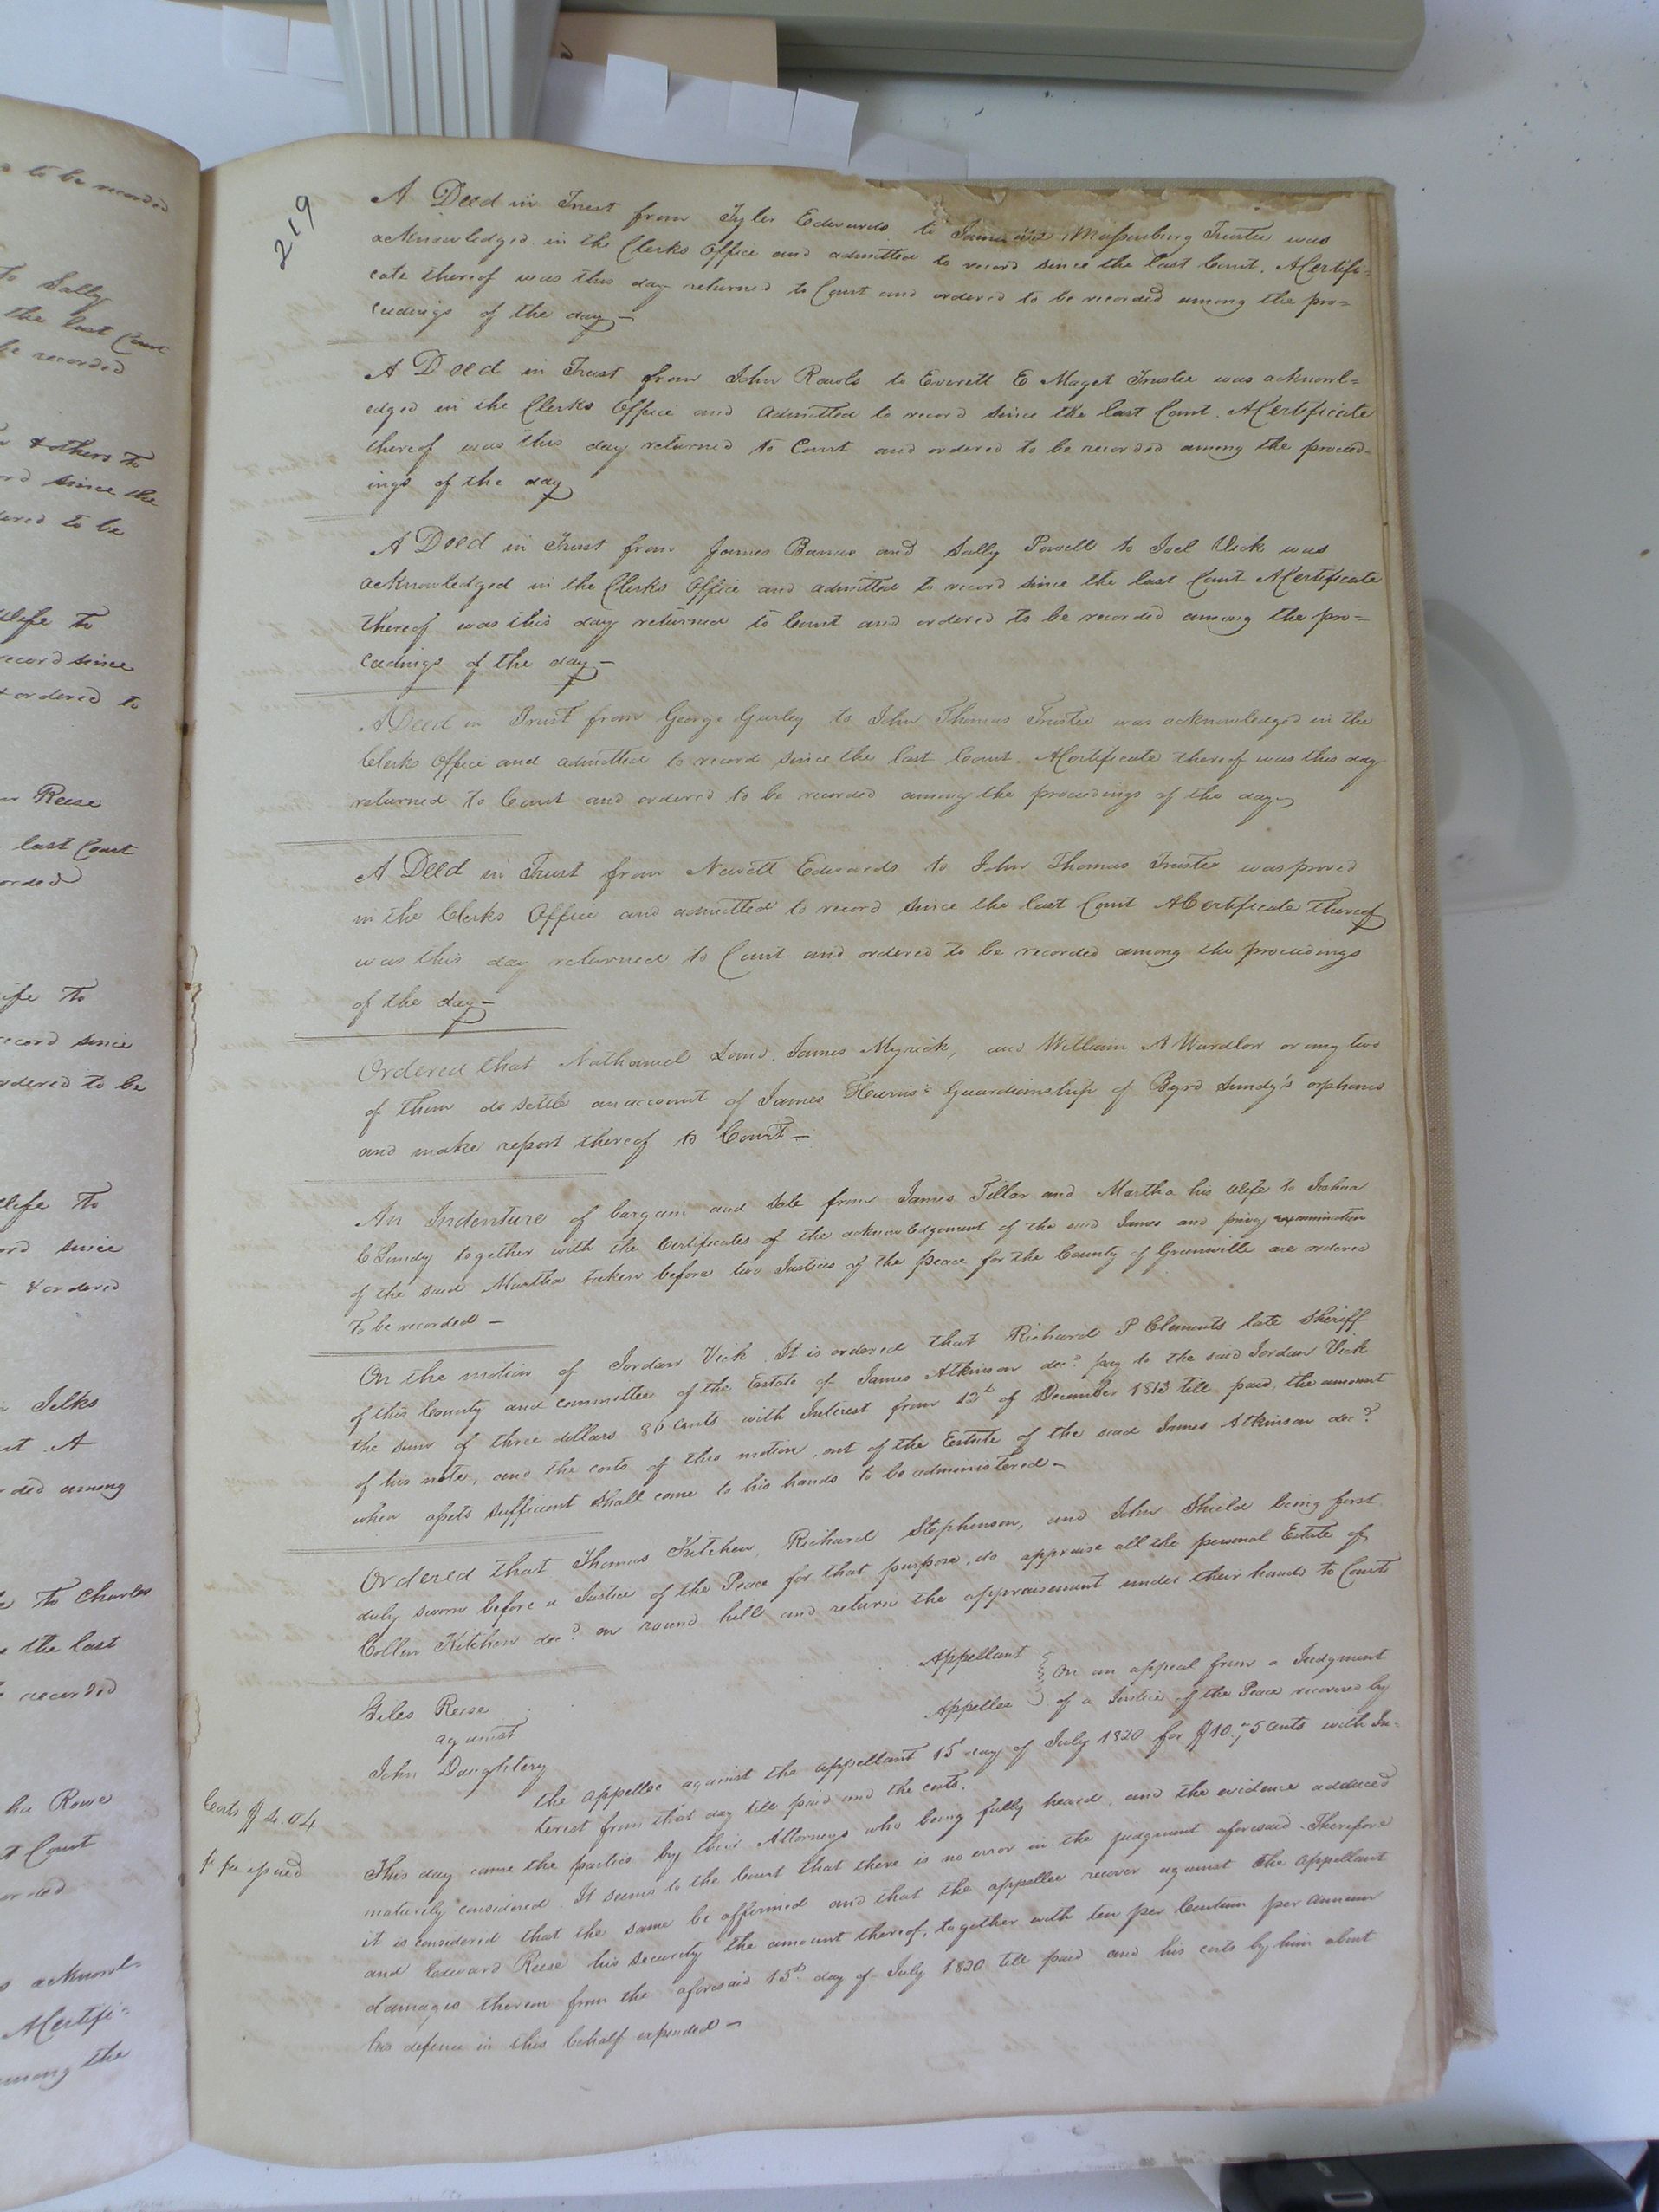 s to be recorded
To Sally
the last Court
be recorded
& others to
ord since the
ered to be
Wife to
record since
& ordered to
Reese
last Court
orded
ife to
record since
ordered to be
Wife to
ord since
& ordered
Jelks
A
ded among
to Charles
the last
recorded
Rowe
Court
acknowl-
A Certifi-
among the
219
A Deed in Trust from Tyler Edwards to Massenburg Trustee was
acknowledged in the Clerks Office and admitted to record since the last Court. A Certifi=
cate thereof was this day returned to Court and ordered to be recorded among the pro=
ceedings of the day —
A Deed in Trust from John Rawls to Everett E Maget Trustee was acknowl=
edged in the Clerks Office and admitted to record since the last Court. A Certificate
thereof was this day returned to Court and ordered to be recorded among the proceed-
ings of the day
A Deed in Trust from James Barnes and Sally Powell to Joel Vick was
acknowledged in the Clerks Office and admitted to record since the last Court A Certificate
thereof was this day returned to Court and ordered to be recorded among the pro=
ceedings of the day —
A Deed in Trust from George Gurley to John Thomas Trustee was acknowledged in the
Clerks Office and admitted to record since the last Court. A Certificate thereof was this day
returned to Court and ordered to be recorded among the proceedings of the day
A Deed in Trust from Newitt Edwards to John Thomas Trustee was proved
in the Clerks Office and admitted to record since the last Court A Certificate thereof
was this day returned to Court and ordered to be recorded among the proceedings
of the day —
Ordered that Nathaniel Land, James Myrick, and William A Wardlow or any two
of them do settle an account of James Harris's Guardianship of Byrd Lundy's orphans
and make report thereof to Court —
An Indenture of bargain and Sale from James Tillar and Martha his Wife to Joshua
C Lundy together with the Certificates of the acknowledgement of the said James and privy examination
of the said Martha taken before two Justices of the peace for the County of Greensville are ordered
to be recorded —
On the motion of Jordan Vick. It is ordered that Richard P Clements late Sheriff
of this County and committee of the Estate of James Atkinson decd. pay to the said Jordan Vick
the sum of three dollars 80 cents with Interest from 12th of December 1813 till paid, the amount
of his note, and the costs of this motion, out of the Estate of the said James Atkinson decd.
when assets sufficient shall come to his hands to be administered —
Ordered that Thomas Kitchen, Richard Stephenson, and John Shield being first
duly sworn before a Justice of the Peace for that purpose, do appraise all the personal Estate of
Collen Kitchen decd. on round hill and return the appraisement under their hands to Court
Giles Reese Appellant
against
John Daughtery Appellee
On an appeal from a Judgment
of a Justice of the Peace recovered by
the appellee against the appellant 15th day of July 1820 for $10.75 Cents with In-
terest from that day till paid and the costs.
Costs $4.04
fi fa issued
This day came the parties by their Attorneys who being fully heard, and the evidence adduced
maturely considered. It seems to the Court that there is no error in the judgment aforesaid. Therefore
it is considered that the same be affirmed and that the appellee recover against the appellant
and Edward Reese his security the amount thereof, together with ten per Centum per annum
damages thereon from the aforesaid 15th day of July 1820 till paid and his costs by him about
his defence in this behalf expended —